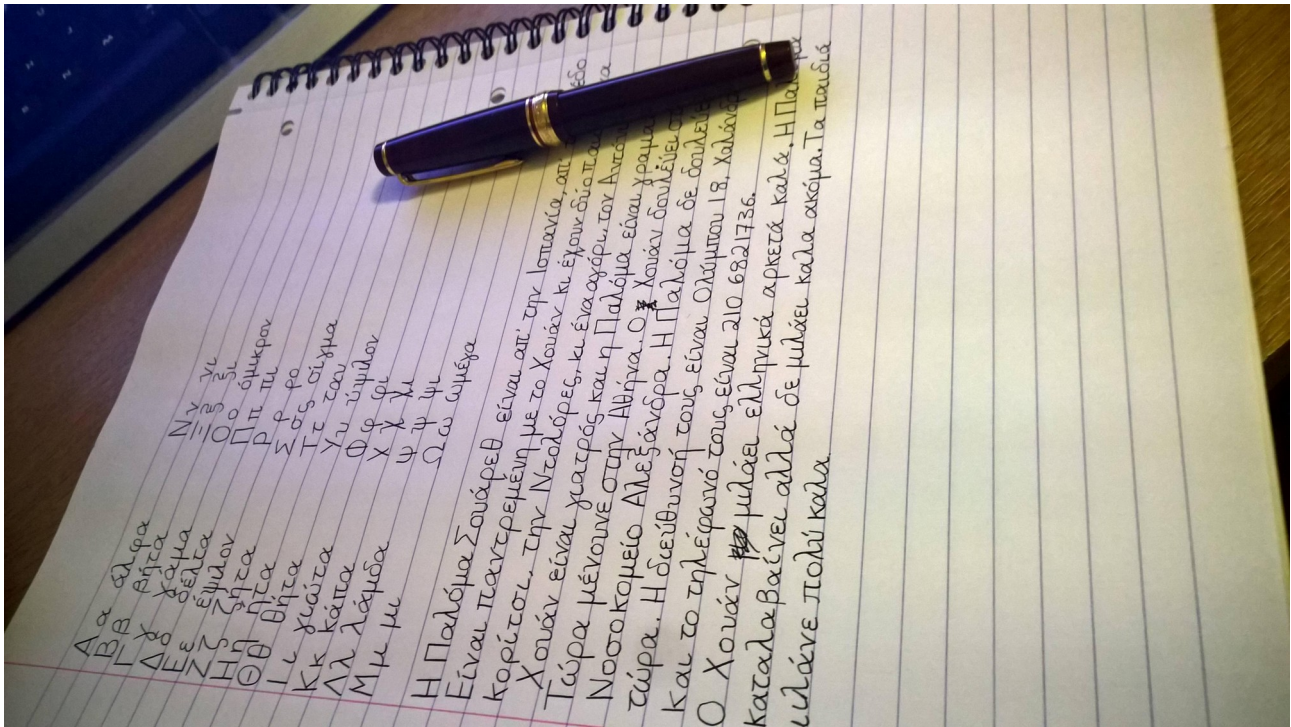 Α α άλφα
Β β βήτα
Γ γ γάμα
Δ δ δέλτα
Ε ε έψιλον
Ζ ζ ζήτα
Η η ήτα
Θ θ θήτα
Ι ι γιώτα
Κ κ κάπα
Λ λ λάμδα
Μ μ μι
Ν ν νι
Ξ ξ ξι
Ο ο όμικρον
Π π πι
Ρ ρ ρο
Σ σς σίγμα
Τ τ ταυ
Υ υ ύψιλον
Φ φ φι
Χ χ χι
Ψ ψ ψι
Ω ω ωμέγα
Η Παλόμα Σουάρεθ είναι απ' την Ισπανία, απ'
Είναι παντρεμένη με το Χουάν κι έχουν δύο
κορίτσι, την Ντολόρες, κι ένα αγόρι, τον
Χουάν είναι γιατρός και η Παλόμα είναι
Τώρα μένουνε στην Αθήνα. Ο Χουάν δουλεύει
Νοσοκομείο Αλεξάνδρα. Η Παλόμα δε
τώρα. Η διεύθυνσή τους είναι Ολύμπου 18,
και το τηλέφωνό τους είναι 210 6821736.
Ο Χουάν μιλάει ελληνικά αρκετά καλά. Η
καταλαβαίνει αλλά δε μιλάει καλα ακόμα. Τα παιδιά
μιλάνε πολύ καλα